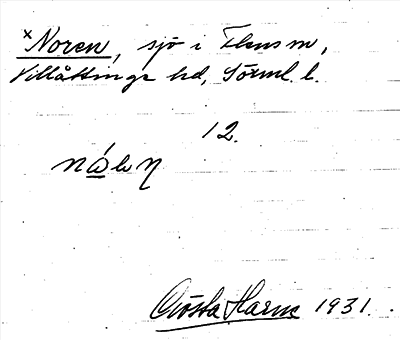 ×Noren, sjö i Flens sn,
Villåttinge hd, Sörml. l.
12.
nǻlen
Gösta Harne 1931.